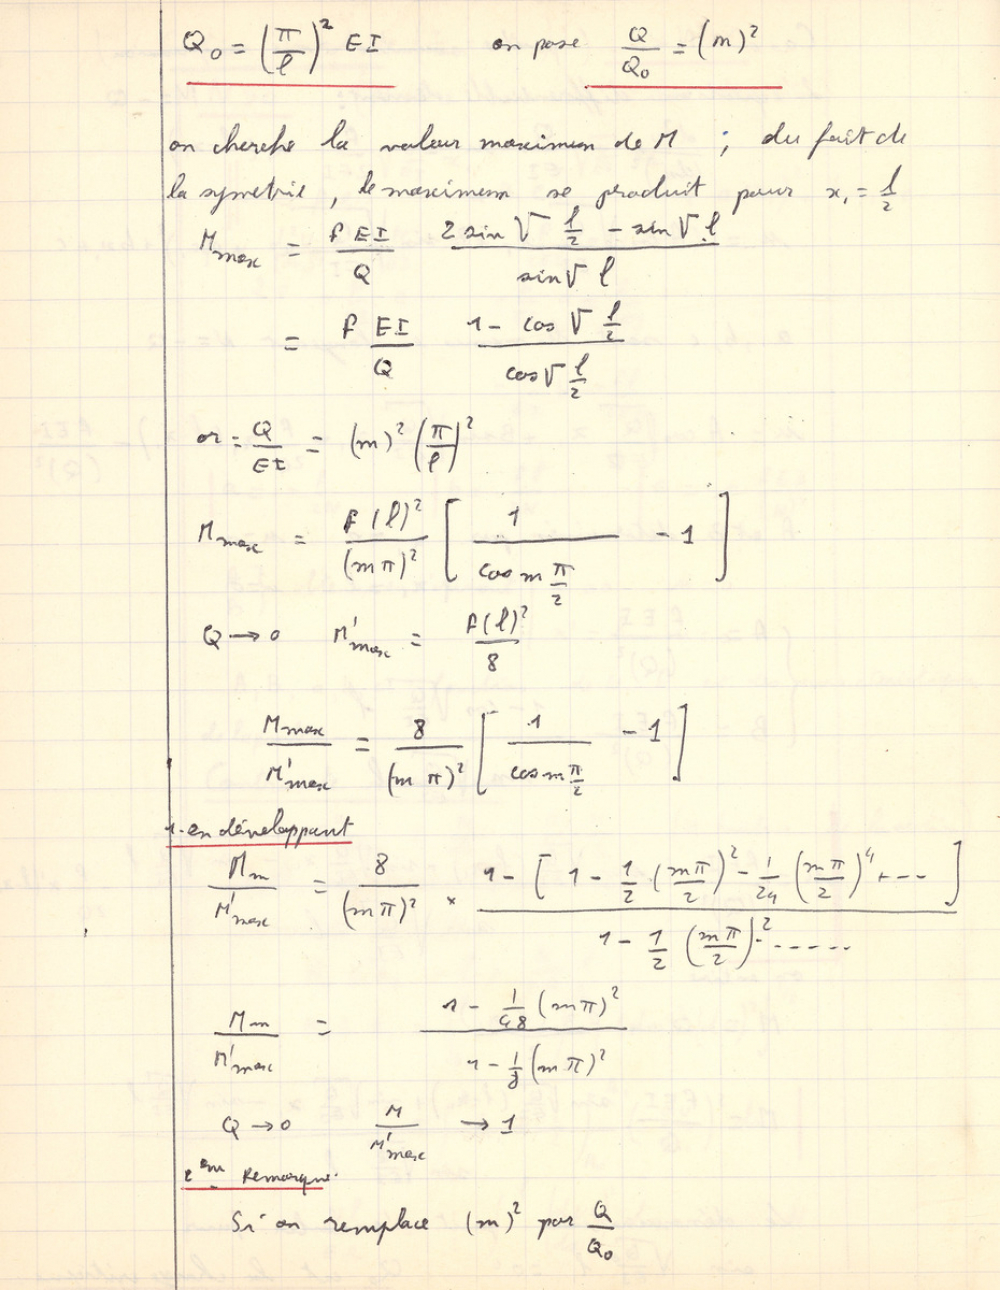 Q₀ = (π/l)² EI on pose Q/Q₀ = (m)²
on cherche la valeur maximum de M ; du fait de
la symetrie, le maximum se produit pour x₁ = l/2
M max = f EI/Q (2 sin √ l/2 - sin √ l)/(sin √ l)
= f EI/Q (1 - cos √ l/2)/(cos √ l/2)
or = Q/EI = (m)² (π/l)²
M max = f(l)²/(mπ)² [ 1/(cos m π/2) - 1 ]
Q → 0 M'max = f(l)²/8
M max/M'max = 8/(mπ)² [ 1/(cos m π/2) - 1 ]
1. en développant
Mm/M'max = 8/(mπ)² × (1 - [ 1 - 1/2 (mπ/2)² - 1/24 (mπ/2)⁴ + --- ])/(1 - 1/2 (mπ/2)² - -----)
Mm/M'max = (1 - 1/48 (mπ)²)/(1 - 1/8 (mπ)²)
Q → 0 M/M'max → 1
2em Remarque.
Si on remplace (m)² par Q/Q₀